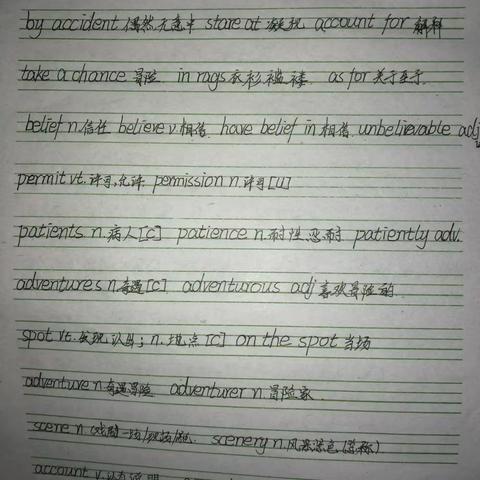 by accident 偶然,无意中 stare at 凝视 account for 解释
take a chance 冒险 in rags 衣衫褴褛 as for 关于至于
belief n.信任 believe v.相信 have belief in 相信 unbelievable adj
permit vt.许可,允许 permission n.许可[u]
patients n.病人[c] patience n.耐性,忍耐 patiently adv.
adventures n.奇遇[c] adventurous adj 喜欢冒险的
spot vt.发现,认出; n.地点[c] on the spot 当场
adventure n.奇遇冒险 adventurer n.冒险家
scene n.(戏剧)一场/现场/ scenery n.风景景色(总称)
account v.